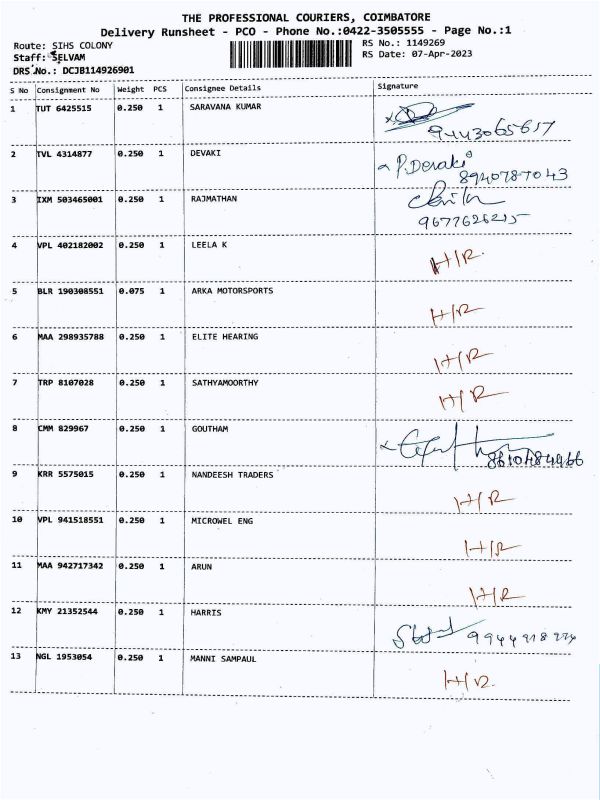 THE PROFESSIONAL COURIERS, COIMBATORE
Delivery Runsheet - PCO - Phone No.:0422-3505555 - Page No.:1
Route: SIHS COLONY
RS No.: 1149269
Staff: SELVAM
RS Date: 07-Apr-2023
DRS No.: DCJB114926901
S No Consignment No Weight PCS Consignee Details Signature
1 TUT 6425515 0.250 1 SARAVANA KUMAR
9443065657
2 TVL 4314877 0.250 1 DEVAKI P.Devaki
8940787043
3 IXM 503465001 0.250 1 RAJMATHAN
9677626215
4 VPL 402182002 0.250 1 LEELA K H/R
5 BLR 190308551 0.075 1 ARKA MOTORSPORTS H/R
6 MAA 298935788 0.250 1 ELITE HEARING H/R
7 TRP 8107028 0.250 1 SATHYAMOORTHY H/R
8 CMM 829967 0.250 1 GOUTHAM
9 KRR 5575015 0.250 1 NANDEESH TRADERS H/R
10 VPL 941518551 0.250 1 MICROWEL ENG H/R
11 MAA 942717342 0.250 1 ARUN H/R
12 KMY 21352544 0.250 1 HARRIS
13 NGL 1953054 0.250 1 MANNI SAMPAUL H/R